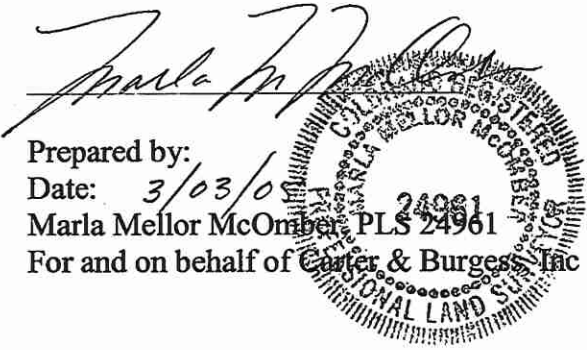 Marla M McOmber
Prepared by:
Date: 3/03/05
Marla Mellor McOmber, PLS 24961
For and on behalf of Carter & Burgess, Inc
COLORADO REGISTERED
MARLA MELLOR McOMBER
24961
PROFESSIONAL LAND SURVEYOR